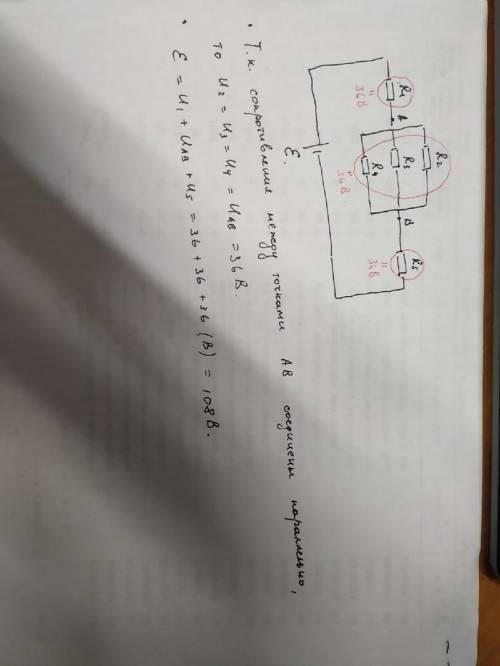 R1
"
36В
A
R2
R3
R4
"
36В
B
R5
"
36В
Ɛ.
• Т.к. сопротивления между точками AB соединены параллельно,
то U2 = U3 = U4 = UAB = 36 В.
• Ɛ = U1 + UAB + U5 = 36 + 36 + 36 (В) = 108 В.